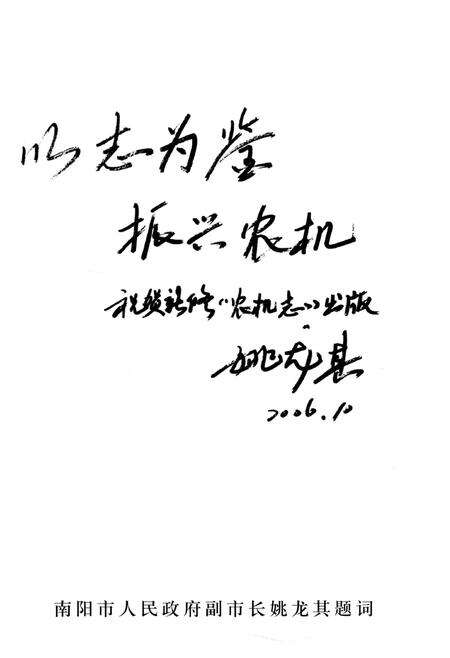 以志为鉴
振兴农机
祝贺新修《农机志》出版
姚龙其
2006.10
南阳市人民政府副市长姚龙其题词